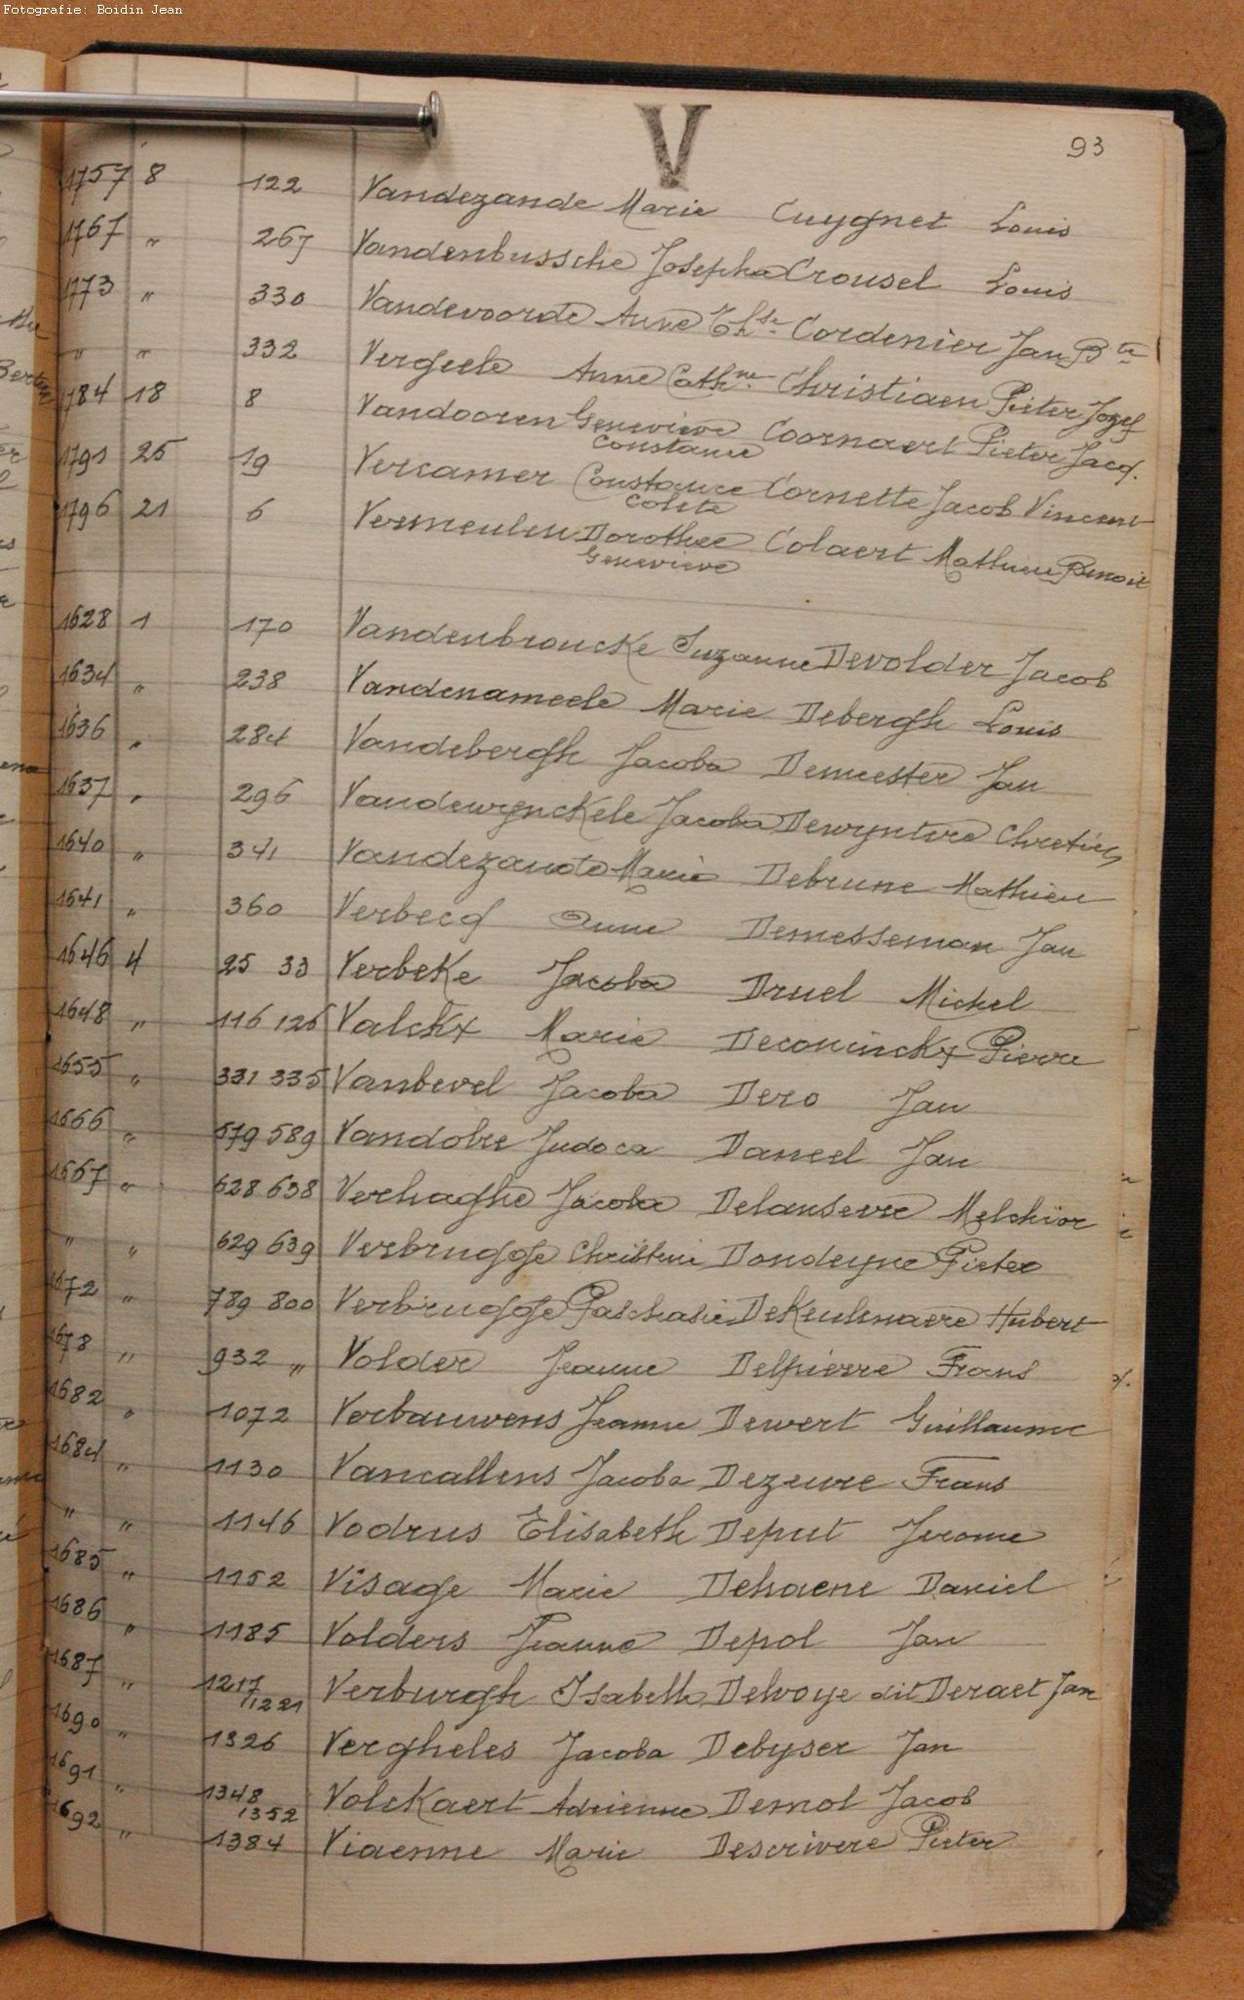 Fotografie: Boidin Jean
V
93
1757 8 122 Vandezande Marie Cuygnet Louis
1767 " 267 Vandenbussche Josepha Crousel Louis
1773 " 330 Vandevoorde Anne Thse Cordenier Jan Bte
" " 332 Vergeele Anne Cathne Christiaen Pieter Jozef
1784 18 8 Vandooren Genevieve Coornaert Pieter Jacq.
Constance
1791 25 19 Vercamer Constance Cornette Jacob Vincent
Colete
1796 21 6 Vermeulen Dorothee Colaert Mathieu Benoit
Genevieve
1628 1 170 Vandenbroucke Suzanne Devolder Jacob
1634 " 238 Vandenameele Marie Debergh Louis
1636 " 284 Vandebergh Jacoba Demeester Jan
1637 " 296 Vandewynckele Jacoba Dewyntere Chretien
1640 " 341 Vandezande Marie Debrune Mathieu
1641 " 360 Verbecq Anne Demesseman Jan
1646 4 25 33 Verbeke Jacoba Druel Michel
1648 " 116 126 Valckx Marie Deconinckx Pierre
1655 " 331 335 Vanbevel Jacoba Dero Jan
1666 " 579 589 Vandobre Judoca Daneel Jan
1667 " 628 638 Verhaghe Jacoba Delansevre Melchior
" " 629 639 Verbrugge Christine Dondeyne Pieter
1672 " 789 800 Verbrugge Paschasie Dekeulenaere Hubert
1678 " 932 " Volder Jeanne Delpierre Frans
1682 " 1072 Verbauwens Jeanne Dewert Guillaume
1684 " 1130 Vancallens Jacoba Dezeure Frans
" " 1146 Vodrus Elisabeth Deput Jerome
1685 " 1152 Visage Marie Dehaene Daniel
1686 " 1185 Volders Jeanne Depol Jan
1687 " 1217 Verburgh Isabelle Delvoye dit Deraet Jan
1221
1690 " 1326 Vergheles Jacoba Debyser Jan
1691 " 1348 Volckaert Adrienne Demol Jacob
1352
1692 " 1384 Viaenne Marie Descrivere Pieter